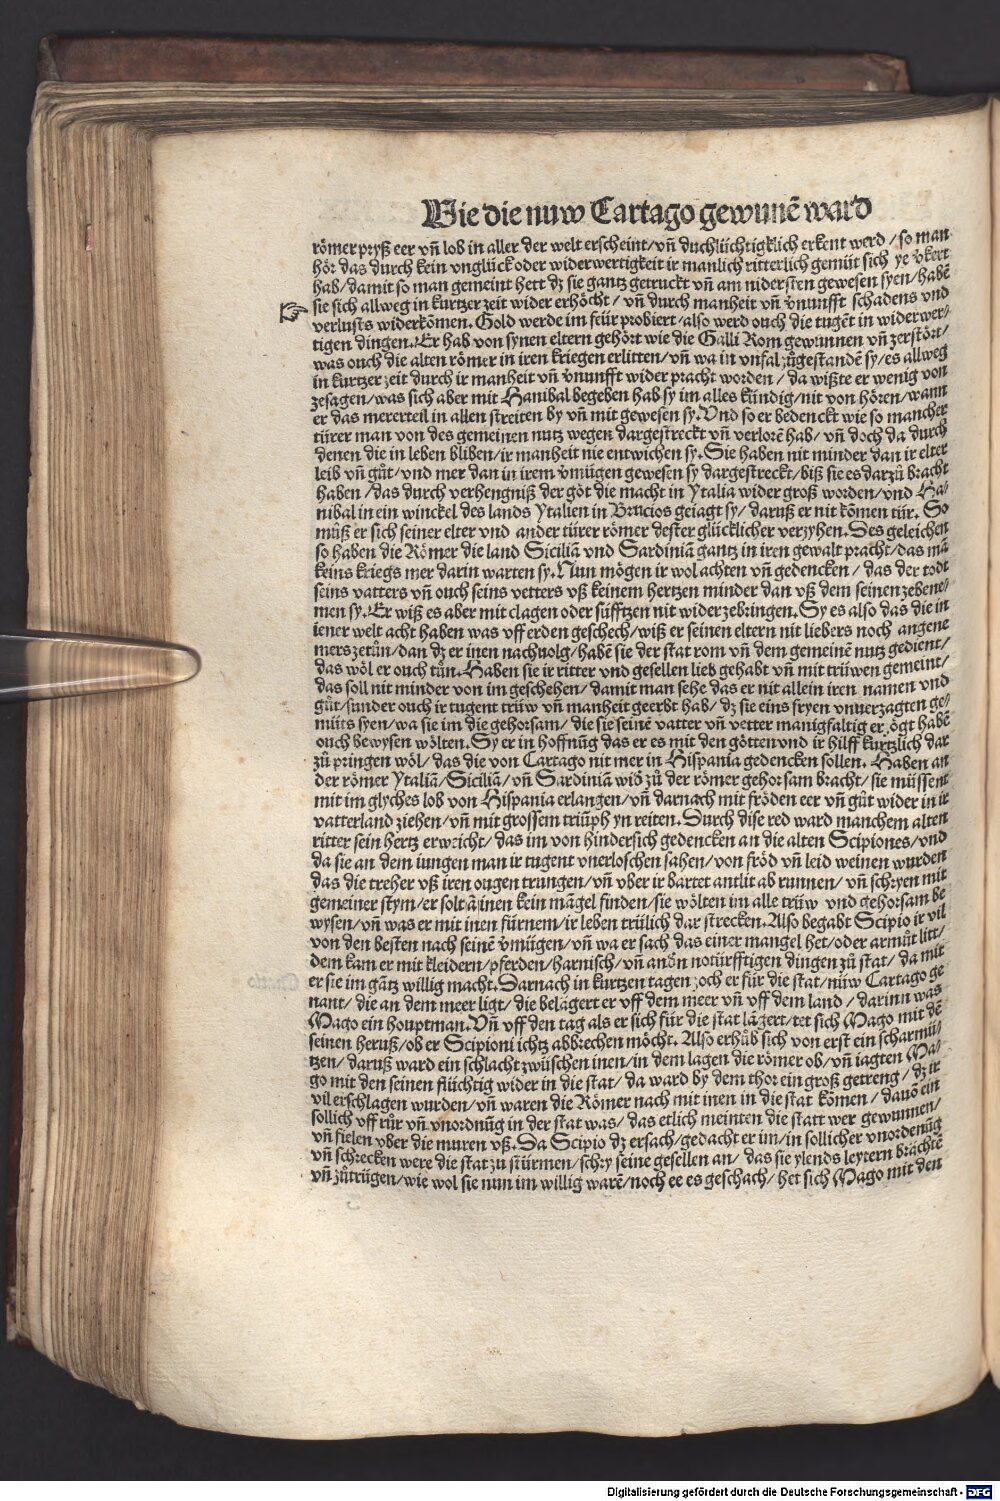 Wie die nuw Cartago gewunnē ward
römer pryß eer vñ lob in aller der welt erscheint/vñ duchlüchtigklich erkent werd/so man
hör das durch kein vnglück oder widerwertigkeit ir manlich ritterlich gemüt sich ye v̈kert
hab/damit so man gemeint hett dz sie gantz getruckt vñ am nidersten gewesen syen/habē
sie sich allweg in kurtzer zeit wider erhöcht/vñ durch manheit vñ v̈nunfft schadens vnd
verlusts widerkōmen. Gold werde im feür probiert/also werd ouch die tugēt in widerwer/
tigen dingen. Er hab von synen eltern gehört wie die Galli Rom gewunnen vñ zerstört/
was ouch die alten römer in iren kriegen erlitten/vñ wa in vnfal zůgestandē sy/es allweg
in kurtzer zeit durch ir manheit vñ v̈nunfft wider pracht worden/da wißte er wenig von
zesagen/was sich aber mit Hanibal begeben hab sy im alles kündig/nit von hören/wann
er das mererteil in allen streiten by vñ mit gewesen sy. Vnd so er bedenckt wie so mancher
türer man von des gemeinen nutz wegen dargestreckt vñ verlorē hab/vñ doch da durch
denen die in leben bliben/ir manheit nie entwichen sy. Sie haben nit minder dan ir elter
leib vñ gůt/vnd mer dan in irem v̈mügen gewesen sy dargestreckt/biß sie es darzů bracht
haben/das durch verhengniß der göt die macht in Ytalia wider groß worden/vnd Ha/
nibal in ein winckel des lands Ytalien in Brucios geiagt sy/daruß er nit kōmen tür. So
můß er sich seiner elter vnd ander türer römer dester glücklicher verzyhen. Des geleichen
so haben die Römer die land Siciliā vnd Sardiniā gantz in iren gewalt pracht/das mā
keins kriegs mer darin warten sy. Nun mögen ir wol achten vñ gedencken/das der todt
seins vatters vñ ouch seins vetters vß keinem hertzen minder dan vß dem seinen zebene/
men sy. Er wiß es aber mit clagen oder süfftzen nit wider zebringen. Sy es also das die in
iener welt acht haben was vff erden geschech/wiß er seinen eltern nit liebers noch angene
mers zetůn/dan dz er inen nachuolg/habē sie der stat rom vñ dem gemeinē nutz gedient/
das wöl er ouch tůn. Haben sie ir ritter vnd gesellen lieb gehabt vñ mit trüwen gemeint/
das soll nit minder von im geschehen/damit man sehe das er nit allein iren namen vnd
gůt/sunder ouch ir tugent trüw vñ manheit geerbt hab/dz sie eins fryen vnuerzagten ge/
můts syen/wa sie im die gehorsam/die sie seinē vatter vñ vetter manigfaltig erzögt habē
ouch bewysen wölten. Sy er in hoffnūg das er es mit den götten vnd ir hilff kürtzlich dar
zů pringen wöl/das die von Cartago nit mer in Hispania gedencken sollen. Haben an
der römer Ytaliā/Siciliā/vñ Sardiniā wid̄ zů der römer gehorsam bracht/sie müssent
mit im glyches lob von Hispania erlangen/vñ darnach mit fröden eer vñ gůt wider in ir
vatterland ziehen/vñ mit grossem triūph yn reiten. Durch dise red ward manchem alten
ritter sein hertz erweicht/das im von hindersich gedencken an die alten Scipiones/vnd
da sie an dem iungen man ir tugent vnerloschen sahen/von fröd vñ leid weinen wurden
das die treher vß iren ougen trungen/vñ vber ir bartet antlit ab runnen/vñ schryen mit
gemeiner stym/er solt ā inen kein māgel finden/sie wölten im alle trüw vnd gehorsam be
wysen/vñ was er mit inen fürnem/ir leben trülich dar strecken. Also begabt Scipio ir vil
von den besten nach seinē v̈mügen/vñ wa er sach das einer mangel het/oder armůt litt/
dem kam er mit kleidern/pferden/harnisch/vñ and̄n notürfftigen dingen zů stat/da mit
er sie im gātz willig macht. Darnach in kurtzen tagen zoch er für die stat/nüw Cartago ge
nant/die an dem meer ligt/die belagert er vff dem meer vñ vff dem land/darinn was
Mago ein houptman. Vñ vff den tag als er sich für die stat lāgert/tet sich Mago mit dē
seinen heruß/ob er Scipioni ichtz abbrechen möcht. Also erhůb sich von erst ein scharmü/
tzen/daruß ward ein schlacht zwüschen inen/in dem lagen die römer ob/vñ iagten Ma/
go mit den seinen flüchtig wider in die stat/da ward by dem thor ein groß getreng/dz ir
vil erschlagen wurden/vñ waren die Römer nach mit inen in die stat kōmen/dauō ein
sollich vff růr vñ vnordnūg in der stat was/das etlich meinten die statt wer gewunnen/
vñ fielen vber die muren vß. Da Scipio dz ersach/gedacht er im/in sollicher vnordenūg
vñ schrecken were die stat zu stürmen/schry seine gesellen an/das sie ylends leytern brāchtē
vñ zůtrügen/wie wol sie nun im willig warē/noch ee es geschach/het sich Mago mit den
Digitalisierung gefördert durch die Deutsche Forschungsgemeinschaft - DFG